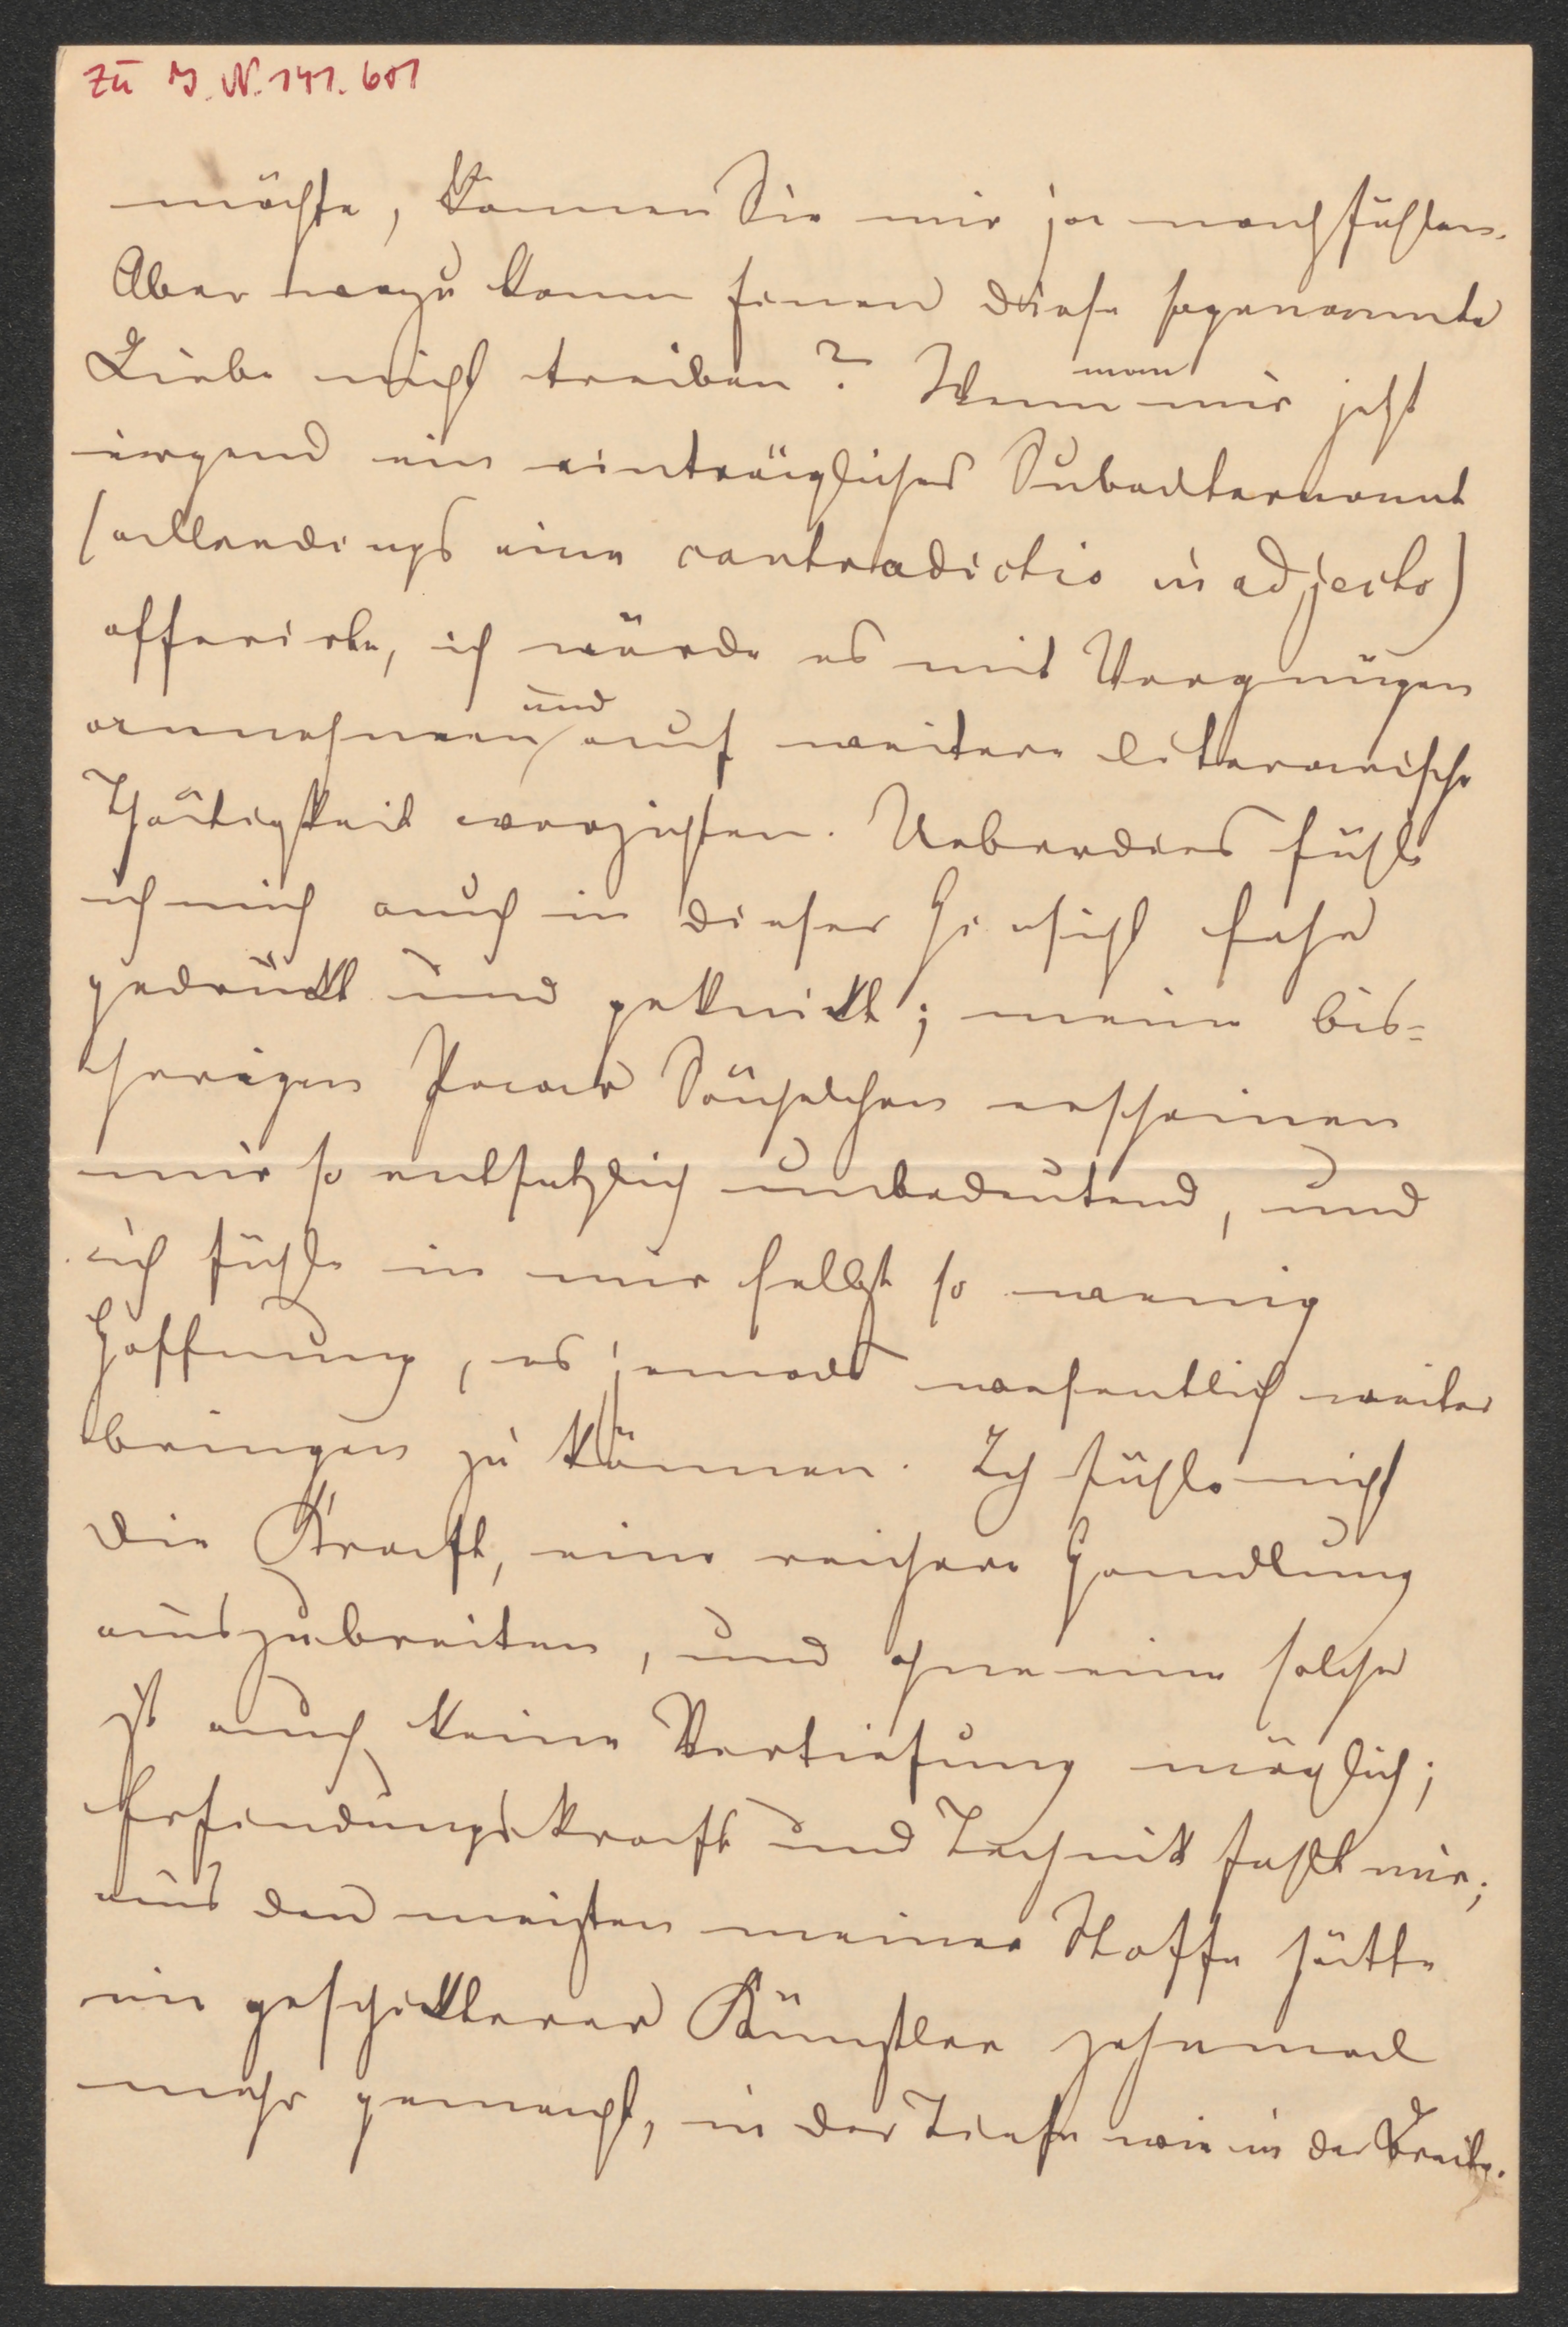 zu I.N. 141.601
möchte, können Sie mir ja nachfühlen.
Aber wozu kann Einen diese sogenannte
Liebe nicht treiben? Wenn man mir jetzt
irgend ein einträgliches Subalternamt
(allerdings eine contradictio in adjecto)
offerirte, ich würde es mit Vergnügen
annehmen und auf weitere literarische
Thätigkeit verzichten. Ueberdies fühle
ich mich auch in dieser Hinsicht sehr
gedrückt und geknickt; meine bis-
herigen Paar Sächelchen erscheinen
mir so entsetzlich unbedeutend, und
ich fühle in mir selbst so wenig
Hoffnung, es jemals wesentlich weiter
bringen zu können. Ich fühle nicht
die Kraft, eine reichere Handlung
auszubreiten, und ohne eine solche
ist auch keine Vertiefung möglich;
Erfindungskraft und Technik fehlt mir;
aus den meisten meiner Stoffe hätte
ein geschickterer Künstler zehnmal
mehr gemacht, in der Tiefe wie in der Breite.